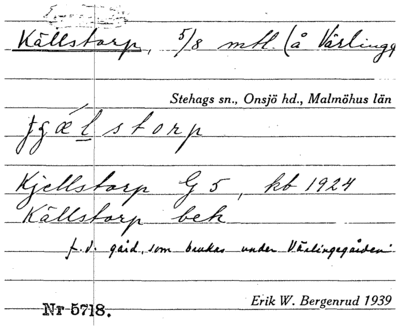 Källstorp, 5/8 mtl. (å Värlinge
Stehags sn., Onsjö hd., Malmöhus län
Kjellstorp G 5, kb 1924
Källstorp bek
f.d. gård, som brukas under Värlingegården.
Nr 5718.
Erik W. Bergenrud 1939